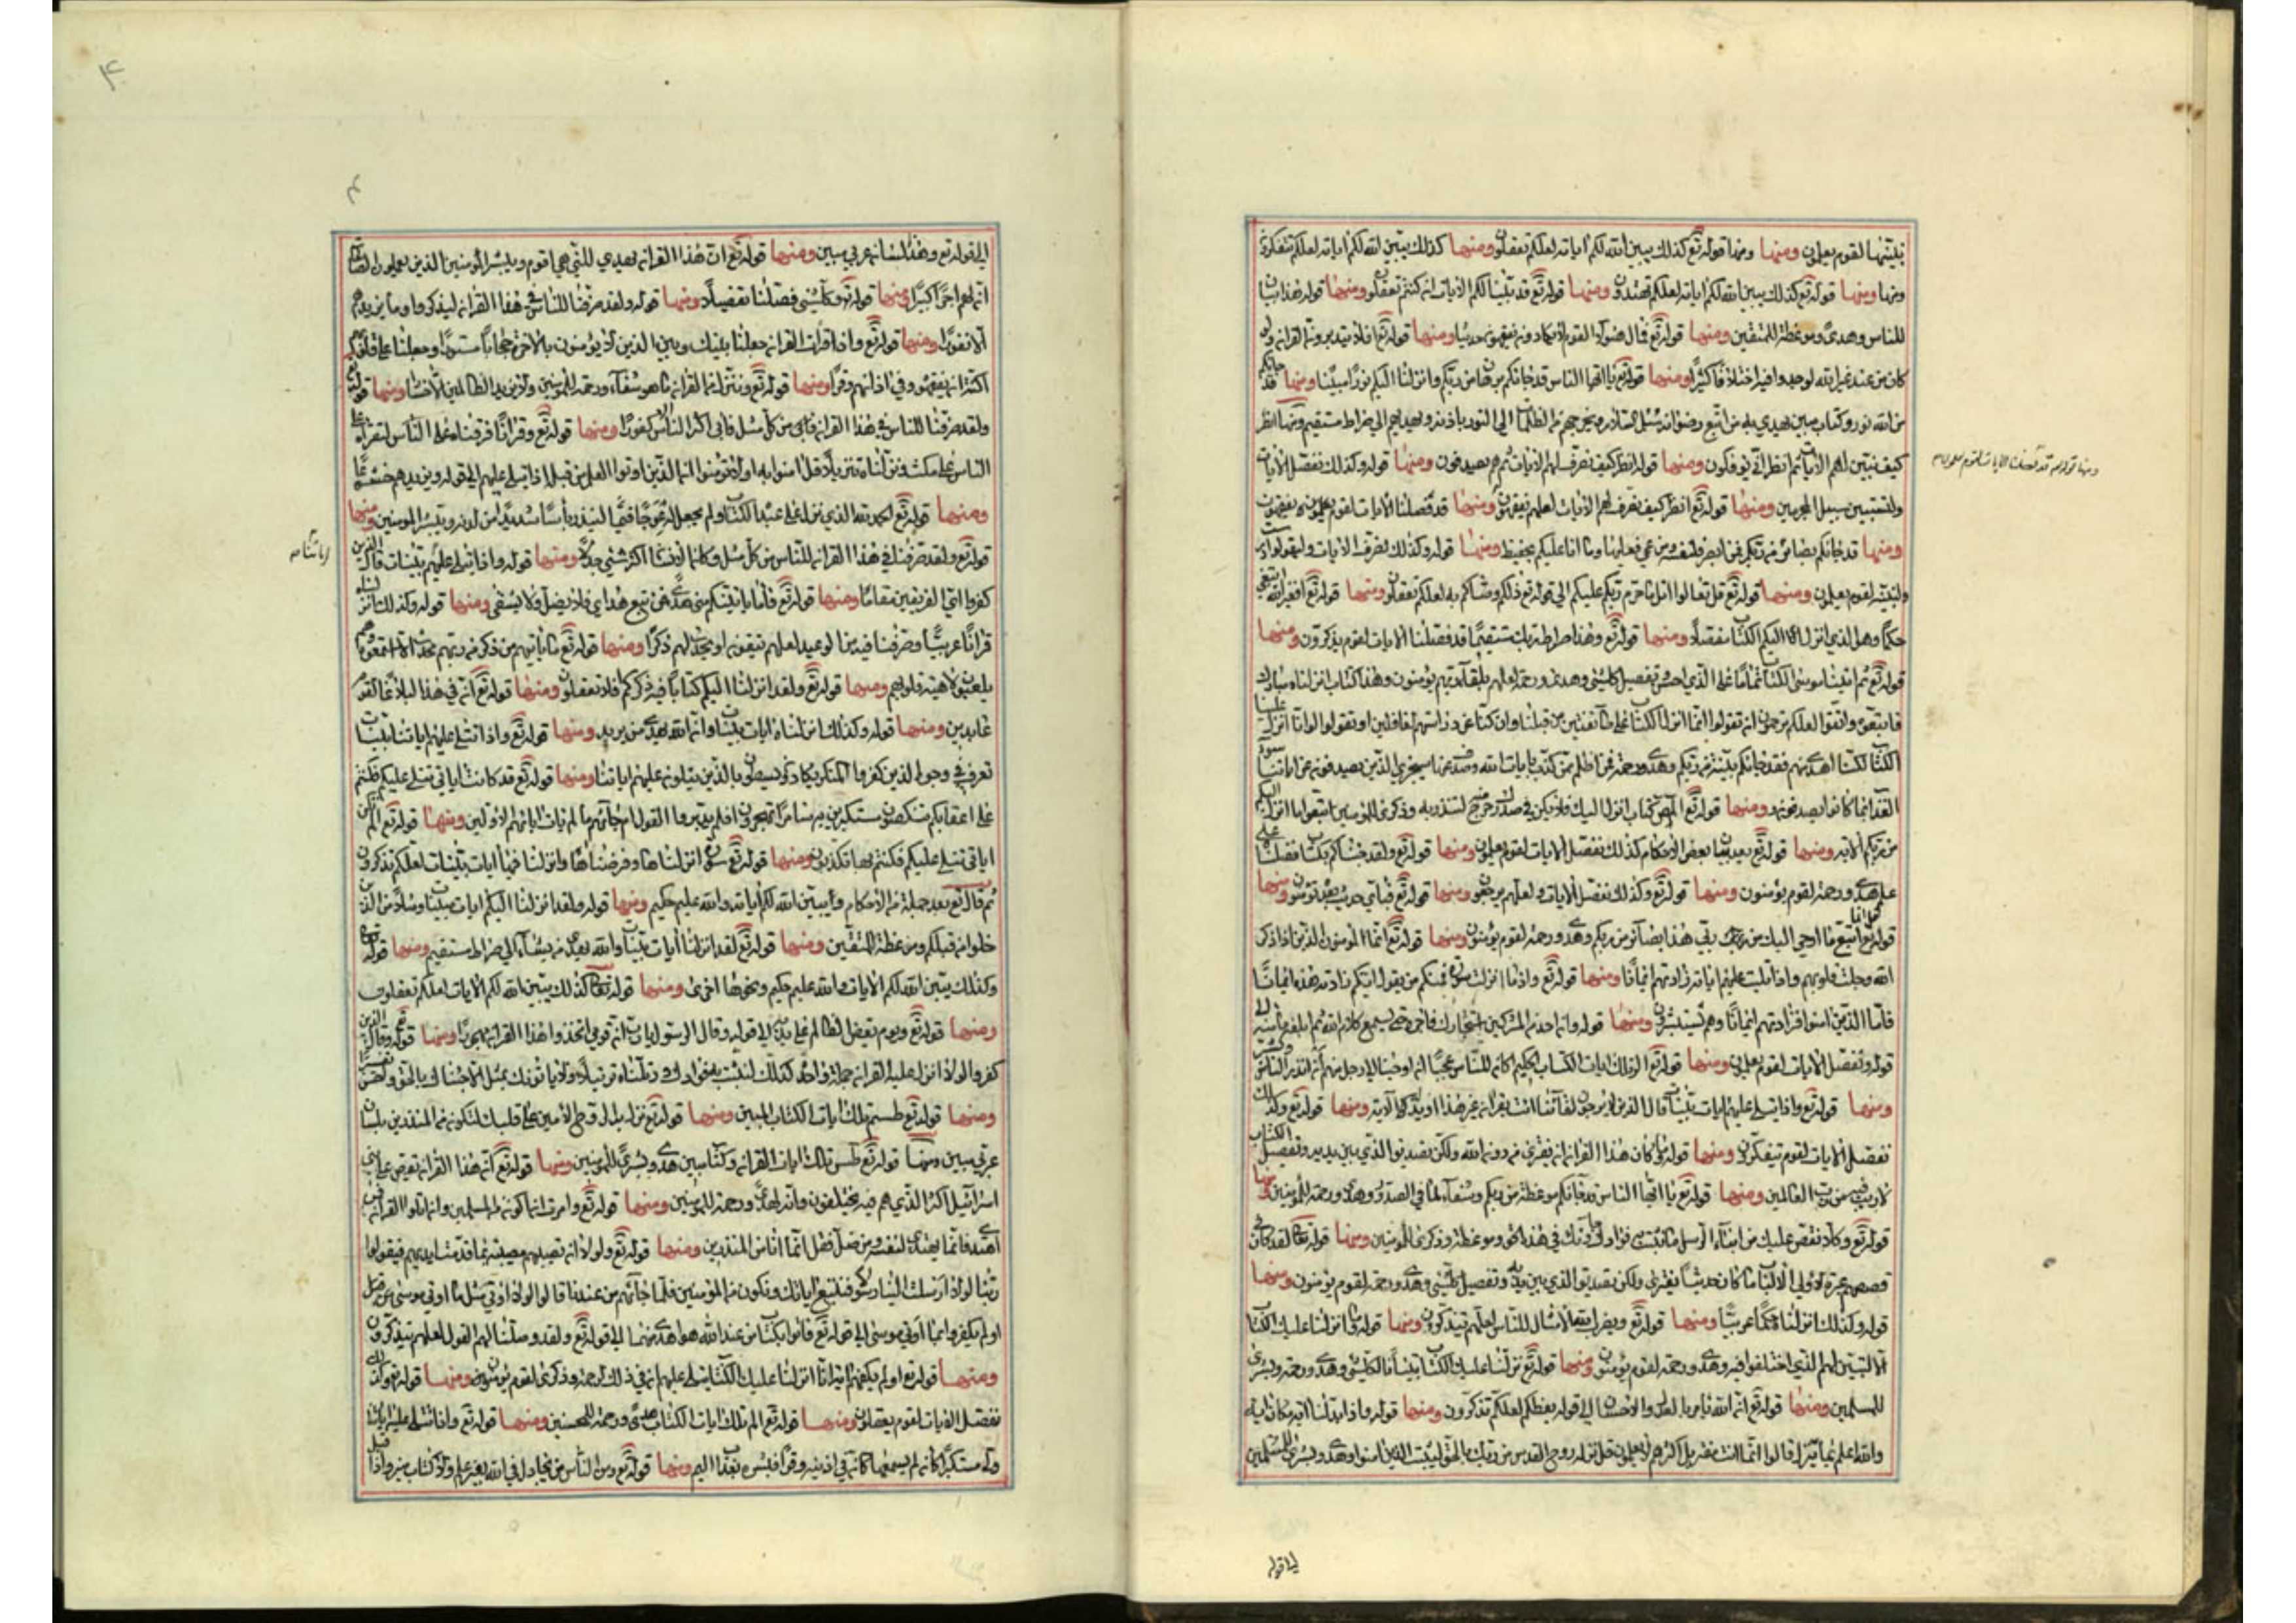 نبيّنها لقوم يعلمون ومنها ومنها قوله تع كذلك يبين الله لكم اياته لعلكم تعقلون ومنها كذلك يبين الله لكم اياته لعلكم تتفكرون
ومنها ومنها قوله تع كذلك يبين الله لكم اياته لعلكم تهتدون ومنها قوله تع قد بينا لكم الايات ان كنتم تعقلون ومنها قوله هذا بيان
للناس وهدى وموعظة للمتقين ومنها قوله تع فمال هؤلاء القوم لا يكادون يفقهون حديثا ومنها قوله تع افلا يتدبرون القران ولو
كان من عند غير الله لوجدوا فيه اختلافا كثيرا ومنها قوله تع يا ايها الناس قد جاءكم برهان من ربكم وانزلنا اليكم نورا مبينا ومنها قد جاءكم
من الله نور وكتاب مبين يهدي به من اتبع رضوانه سبل السلام ويخرجهم من الظلمات الى النور باذنه ويهديهم الى صراط مستقيم ومنها انظر
كيف نبين لهم الايات ثم انظر انى يؤفكون ومنها قوله انظر كيف نصرف لهم الايات ثم هم يصدفون ومنها قوله وكذلك نفصل الايات
ولتستبين سبيل المجرمين ومنها قوله تع انظر كيف نصرف لهم الايات لعلهم يفقهون ومنها قد فصلنا الايات لقوم يعلمون يفقهون
ومنها قد جاءكم بصائر من ربكم فمن ابصر فلنفسه ومن عمي فعليها وما انا عليكم بحفيظ ومنها قوله وكذلك نصرف الايات وليقولوا درست
ولنبينه لقوم يعلمون ومنها قوله تع قل تعالوا اتل ما حرم ربكم عليكم الى قوله تع ذلكم وصاكم به لعلكم تعقلون ومنها قوله تع افغير الله ابتغي
حكما وهو الذي انزل اليكم الكتاب مفصلا ومنها قوله تع وهذا صراط ربك مستقيما قد فصلنا الايات لقوم يذكرون ومنها
قوله تع ثم اتينا موسى الكتاب تماما على الذي احسن وتفصيلا لكل شيء وهدى ورحمة لعلهم بلقاء ربهم يؤمنون وهذا كتاب انزلناه مبارك
فاتبعوه واتقوا لعلكم ترحمون ان تقولوا انما انزل الكتاب على طائفتين من قبلنا وان كنا عن دراستهم لغافلين او تقولوا لو انا انزل علينا
الكتاب لكنا اهدى منهم فقد جاءكم بينة من ربكم وهدى ورحمة فمن اظلم ممن كذب بايات الله وصدف عنها سنجزي الذين يصدفون عن اياتنا سوء
العذاب بما كانوا يصدفون ومنها قوله تع المص كتاب انزل اليك فلا يكن في صدرك حرج منه لتنذر به وذكرى للمؤمنين اتبعوا ما انزل اليكم
من ربكم الاية ومنها قوله تع بعد بيان بعض الاحكام كذلك نفصل الايات لقوم يعلمون ومنها قوله تع ولقد جئناكم بكتاب فصلناه على
علم هدى ورحمة لقوم يؤمنون ومنها قوله تع وكذلك نفصل الايات ولعلهم يرجعون ومنها قوله تع فباي حديث بعده يؤمنون ومنها
قوله تع قل انما اتبع ما اوحي الي من ربي هذا بصائر من ربكم وهدى ورحمة لقوم يؤمنون ومنها قوله تع انما المؤمنون الذين اذا ذكر
الله وجلت قلوبهم واذا تليت عليهم اياته زادتهم ايمانا ومنها قوله تع واذا ما انزلت سورة فمنكم من يقول ايكم زادته هذه ايمانا
فاما الذين امنوا فزادتهم ايمانا وهم يستبشرون ومنها قوله وان احد من المشركين استجارك فاجره حتى يسمع كلام الله ثم ابلغه مأمنه الى
قوله ونفصل الايات لقوم يعلمون ومنها قوله تع الر تلك ايات الكتاب الحكيم اكان للناس عجبا ان اوحينا الى رجل منهم ان انذر الناس وبشر
ومنها قوله تع واذا تتلى عليهم ايات بينات قال الذين لا يرجون لقاءنا ائت بقران غير هذا او بدله الاية ومنها قوله تع وكذلك
نفصل الايات لقوم يتفكرون ومنها قوله وما كان هذا القران ان يفترى من دون الله ولكن تصديق الذي بين يديه وتفصيل الكتاب
لا ريب فيه من رب العالمين ومنها قوله تع يا ايها الناس قد جاءتكم موعظة من ربكم وشفاء لما في الصدور وهدى ورحمة للمؤمنين ومنها
قوله تع وكلا نقص عليك من انباء الرسل ما نثبت به فؤادك وجاءك في هذه الحق وموعظة وذكرى للمؤمنين ومنها قوله تع لقد كان في
قصصهم عبرة لاولي الالباب ما كان حديثا يفترى ولكن تصديق الذي بين يديه وتفصيل كل شيء وهدى ورحمة لقوم يؤمنون ومنها
قوله وكذلك انزلناه حكما عربيا ومنها قوله تع ويضرب الله الامثال للناس لعلهم يتذكرون ومنها قوله وما انزلنا عليك الكتاب
الا لتبين لهم الذي اختلفوا فيه وهدى ورحمة لقوم يؤمنون ومنها قوله تع نزلنا عليك الكتاب تبيانا لكل شيء وهدى ورحمة وبشرى
للمسلمين ومنها قوله تع ان الله يامر بالعدل والاحسان الى قوله يعظكم لعلكم تذكرون ومنها قوله واذا بدلنا اية مكان اية
والله اعلم بما ينزل قالوا انما انت مفتر بل اكثرهم لا يعلمون قل نزله روح القدس من ربك بالحق ليثبت الذين امنوا وهدى وبشرى للمسلمين
الى قوله
۴
الى قوله تع وهذا لسان عربي مبين ومنها قوله تع ان هذا القران يهدي للتي هي اقوم ويبشر المؤمنين الذين يعملون الصالحات
ان لهم اجرا كبيرا ومنها قوله تع وكل شيء فصلناه تفصيلا ومنها قوله ولقد صرفنا للناس في هذا القران ليذكروا وما يزيدهم
الا نفورا ومنها قوله تع واذا قرات القران جعلنا بينك وبين الذين لا يؤمنون بالاخرة حجابا مستورا وجعلنا على قلوبهم
اكنة ان يفقهوه وفي اذانهم وقرا ومنها قوله تع وننزل من القران ما هو شفاء ورحمة للمؤمنين ولا يزيد الظالمين الا خسارا ومنها قوله تع
ولقد صرفنا للناس في هذا القران من كل مثل فابى اكثر الناس الا كفورا ومنها قوله تع وقرانا فرقناه لتقراه على
الناس على مكث ونزلناه تنزيلا قل امنوا به او لا تؤمنوا ان الذين اوتوا العلم من قبله اذا يتلى عليهم الى قوله ويزيدهم خشوعا
ومنها قوله تع الحمد لله الذي نزل على عبده الكتاب ولم يجعل له عوجا قيما لينذر باسا شديدا من لدنه ويبشر المؤمنين ومنها
قوله تع ولقد صرفنا في هذا القران للناس من كل مثل وكان الانسان اكثر شيء جدلا ومنها قوله واذا تتلى عليهم اياتنا بينات قال الذين
كفروا اي الفريقين خير مقاما ومنها قوله تع فاما ياتينكم مني هدى فمن تبع هداي فلا يضل ولا يشقى ومنها قوله وكذلك انزلناه
قرانا عربيا وصرفنا فيه من الوعيد لعلهم يتقون او يحدث لهم ذكرا ومنها قوله تع ما ياتيهم من ذكر من ربهم محدث الا استمعوه وهم
يلعبون لاهية قلوبهم ومنها قوله تع ولقد انزلنا اليكم كتابا فيه ذكركم افلا تعقلون ومنها قوله تع ان في هذا لبلاغا لقوم
عابدين ومنها قوله وكذلك انزلناه ايات بينات وان الله يهدي من يريد ومنها قوله تع واذا تتلى عليهم اياتنا بينات
تعرف في وجوه الذين كفروا المنكر يكادون يسطون بالذين يتلون عليهم اياتنا ومنها قوله تع قد كانت اياتي تتلى عليكم فكنتم
على اعقابكم تنكصون مستكبرين به سامرا تهجرون افلم يدبروا القول ام جاءهم ما لم يات اباءهم الاولين ومنها قوله تع الم تكن
اياتي تتلى عليكم فكنتم بها تكذبون ومنها قوله تع سورة انزلناها وفرضناها وانزلنا فيها ايات بينات لعلكم تذكرون
ثم قال تع بعد جملة من الاحكام ويبين الله لكم الايات والله عليم حكيم ومنها قوله ولقد انزلنا اليكم ايات مبينات ومثلا من الذين
خلوا من قبلكم وموعظة للمتقين ومنها قوله تع لقد انزلنا ايات مبينات والله يهدي من يشاء الى صراط مستقيم ومنها قوله تع
وكذلك يبين الله لكم الايات والله عليم حكيم ونحوها اخرى ومنها قوله تع كذلك يبين الله لكم الايات لعلكم تعقلون
ومنها قوله تع ويوم يعض الظالم على يديه الى قوله وقال الرسول يا رب ان قومي اتخذوا هذا القران مهجورا ومنها قوله تع وقال الذين
كفروا لولا نزل عليه القران جملة واحدة كذلك لنثبت به فؤادك ورتلناه ترتيلا ولا ياتونك بمثل الا جئناك بالحق واحسن تفسيرا
ومنها قوله تع طسم تلك ايات الكتاب المبين ومنها قوله تع نزل به الروح الامين على قلبك لتكون من المنذرين بلسان
عربي مبين ومنها قوله تع طس تلك ايات القران وكتاب مبين هدى وبشرى للمؤمنين ومنها قوله تع ان هذا القران يقص على بني
اسرائيل اكثر الذي هم فيه يختلفون وانه لهدى ورحمة للمؤمنين ومنها قوله تع وامرت ان اكون من المسلمين وان اتلوا القران فمن
اهتدى فانما يهتدي لنفسه ومن ضل فقل انما انا من المنذرين ومنها قوله تع ولولا ان تصيبهم مصيبة بما قدمت ايديهم فيقولوا
ربنا لولا ارسلت الينا رسولا فنتبع اياتك ونكون من المؤمنين فلما جاءهم الحق من عندنا قالوا لولا اوتي مثل ما اوتي موسى من قبل
اولم يكفروا بما اوتي موسى الى قوله تع فاتوا بكتاب من عند الله هو اهدى منهما الى قوله تع ولقد وصلنا لهم القول لعلهم يتذكرون
ومنها قوله تع اولم يكفهم انا انزلنا عليك الكتاب يتلى عليهم ان في ذلك لرحمة وذكرى لقوم يؤمنون ومنها قوله تع وكذلك
نفصل الايات لقوم يعقلون ومنها قوله تع الم تلك ايات الكتاب هدى ورحمة للمحسنين ومنها قوله تع واذا تتلى عليه اياتنا
ولى مستكبرا كان لم يسمعها كان في اذنيه وقرا فبشره بعذاب اليم ومنها قوله تع ومن الناس من يجادل في الله بغير علم ولا كتاب منير واذا قيل